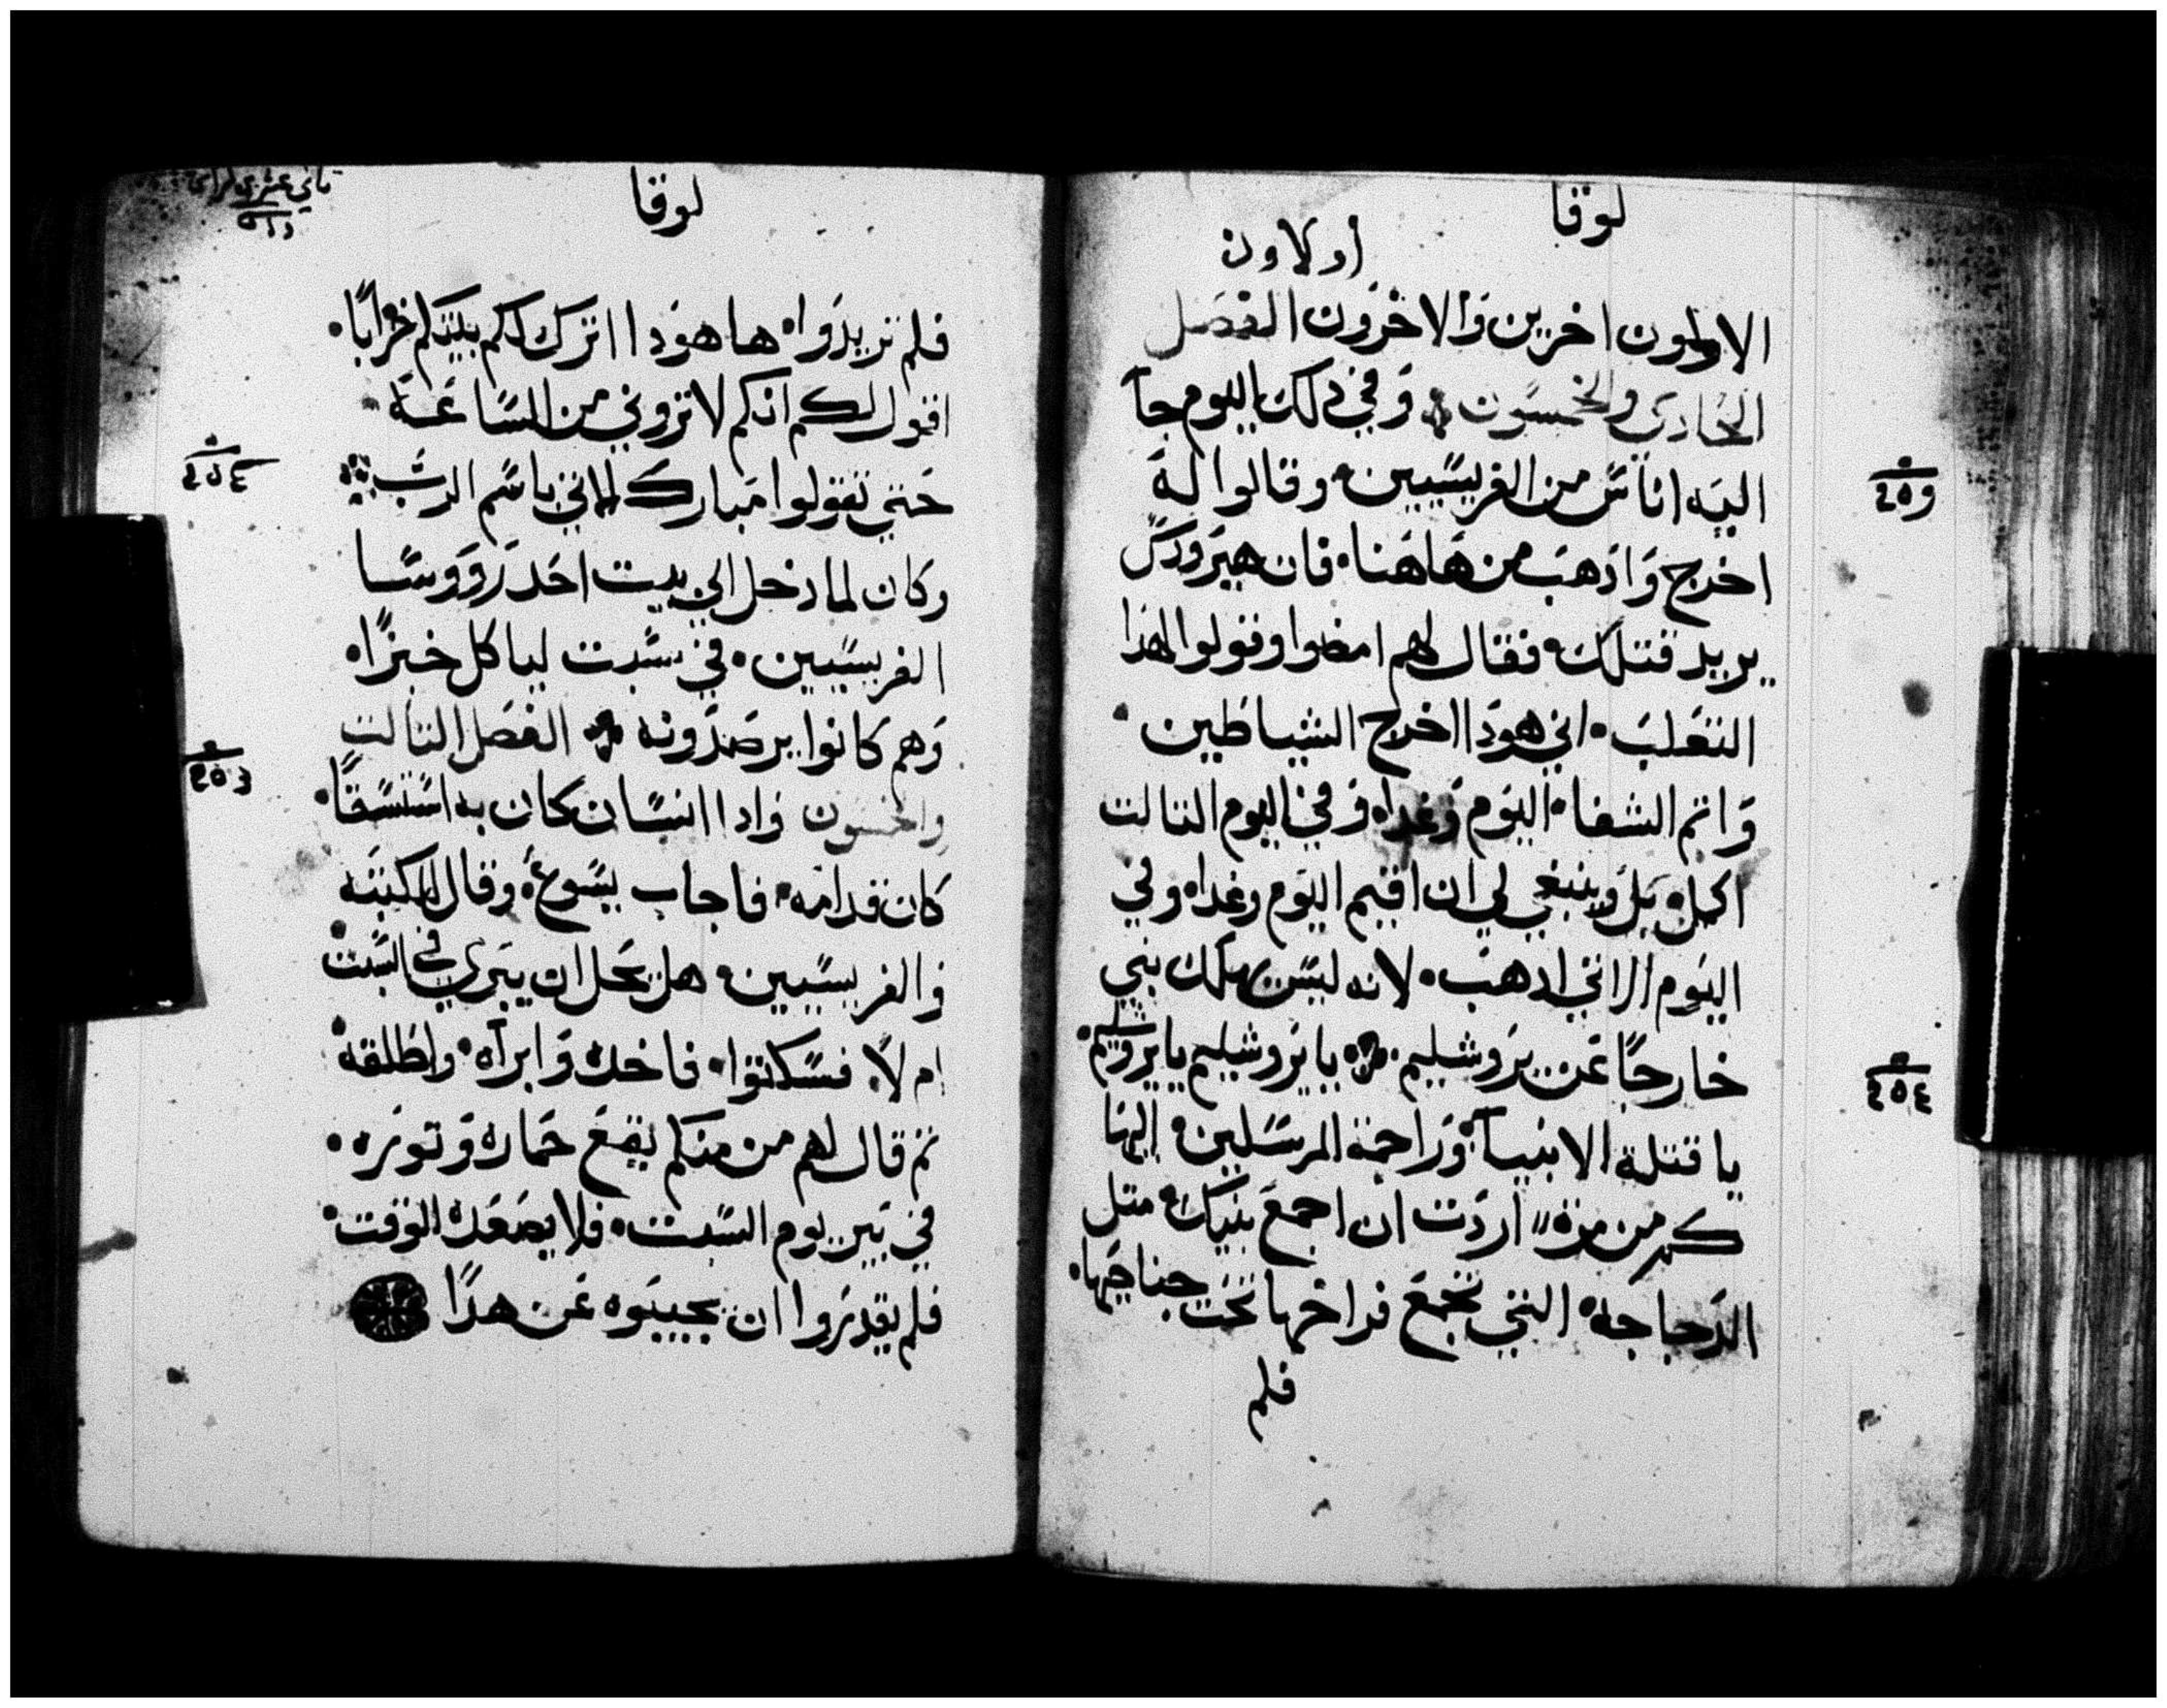 لوقا
اولاون
الاولون اخرين والاخرون الفصل
الحادي والخمسون وفي ذلك اليوم جآ
اليه اناس من الفريسيين وقالوا له
اخرج واذهب من هاهنا فان هيرودس
يريد قتلك فقال لهم امضوا وقولوا لهذا
التعلب اني هودا اخرج الشياطين
واتم الشفا اليوم وغدا وفي اليوم التالت
اكمل بل وينبغي لي ان اقيم اليوم وغدا وفي
اليوم الاتي ادهب لانه ليس يهلك نبي
خارجًا عن يروشليم يا يروشليم يا يروشليم
يا قتلة الانبيآ وراجمة المرسلين اليها
كم من مرة اردت ان اجمع بنيك متل
الدجاجه التي تجمع فراخها تحت جناحيها
فلم
لوقا
فلم تريدوا ها هودا اترك لكم بيتكم خرابًا
اقول لكم انكم لا تروني من الساعة
حتي تقولوا مبارك الاتي باسم الرب
وكان لما دخل الي بيت احد رووسا
الفريسيين في سبت لياكل خبزًا
وهم كانوا يرصدونه الفصل التالت
والخمسون وادا انسان كان به استسقا
كان قدامه فاجاب يسوع وقال للكتبه
والفريسيين هل يحل ان يبري في السبت
ام لا فسكتوا فاخده وابراه واطلقه
تم قال لهم من منكم يقع حماره وتوره
في بير يوم السبت فلا يصعده الوقت
فلم يقدروا ان يجيبوه عن هدا